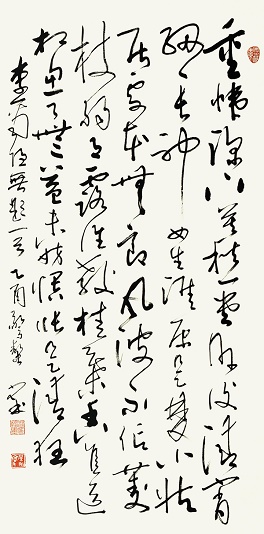 重帏深下莫愁堂卧後清宵
细々長神女生涯原是梦小姑
居处本無郎風波不信菱
枝弱月露谁教桂葉香直道
相思了無益未妨惆怅是清狂
李商隐無題一首乙酉